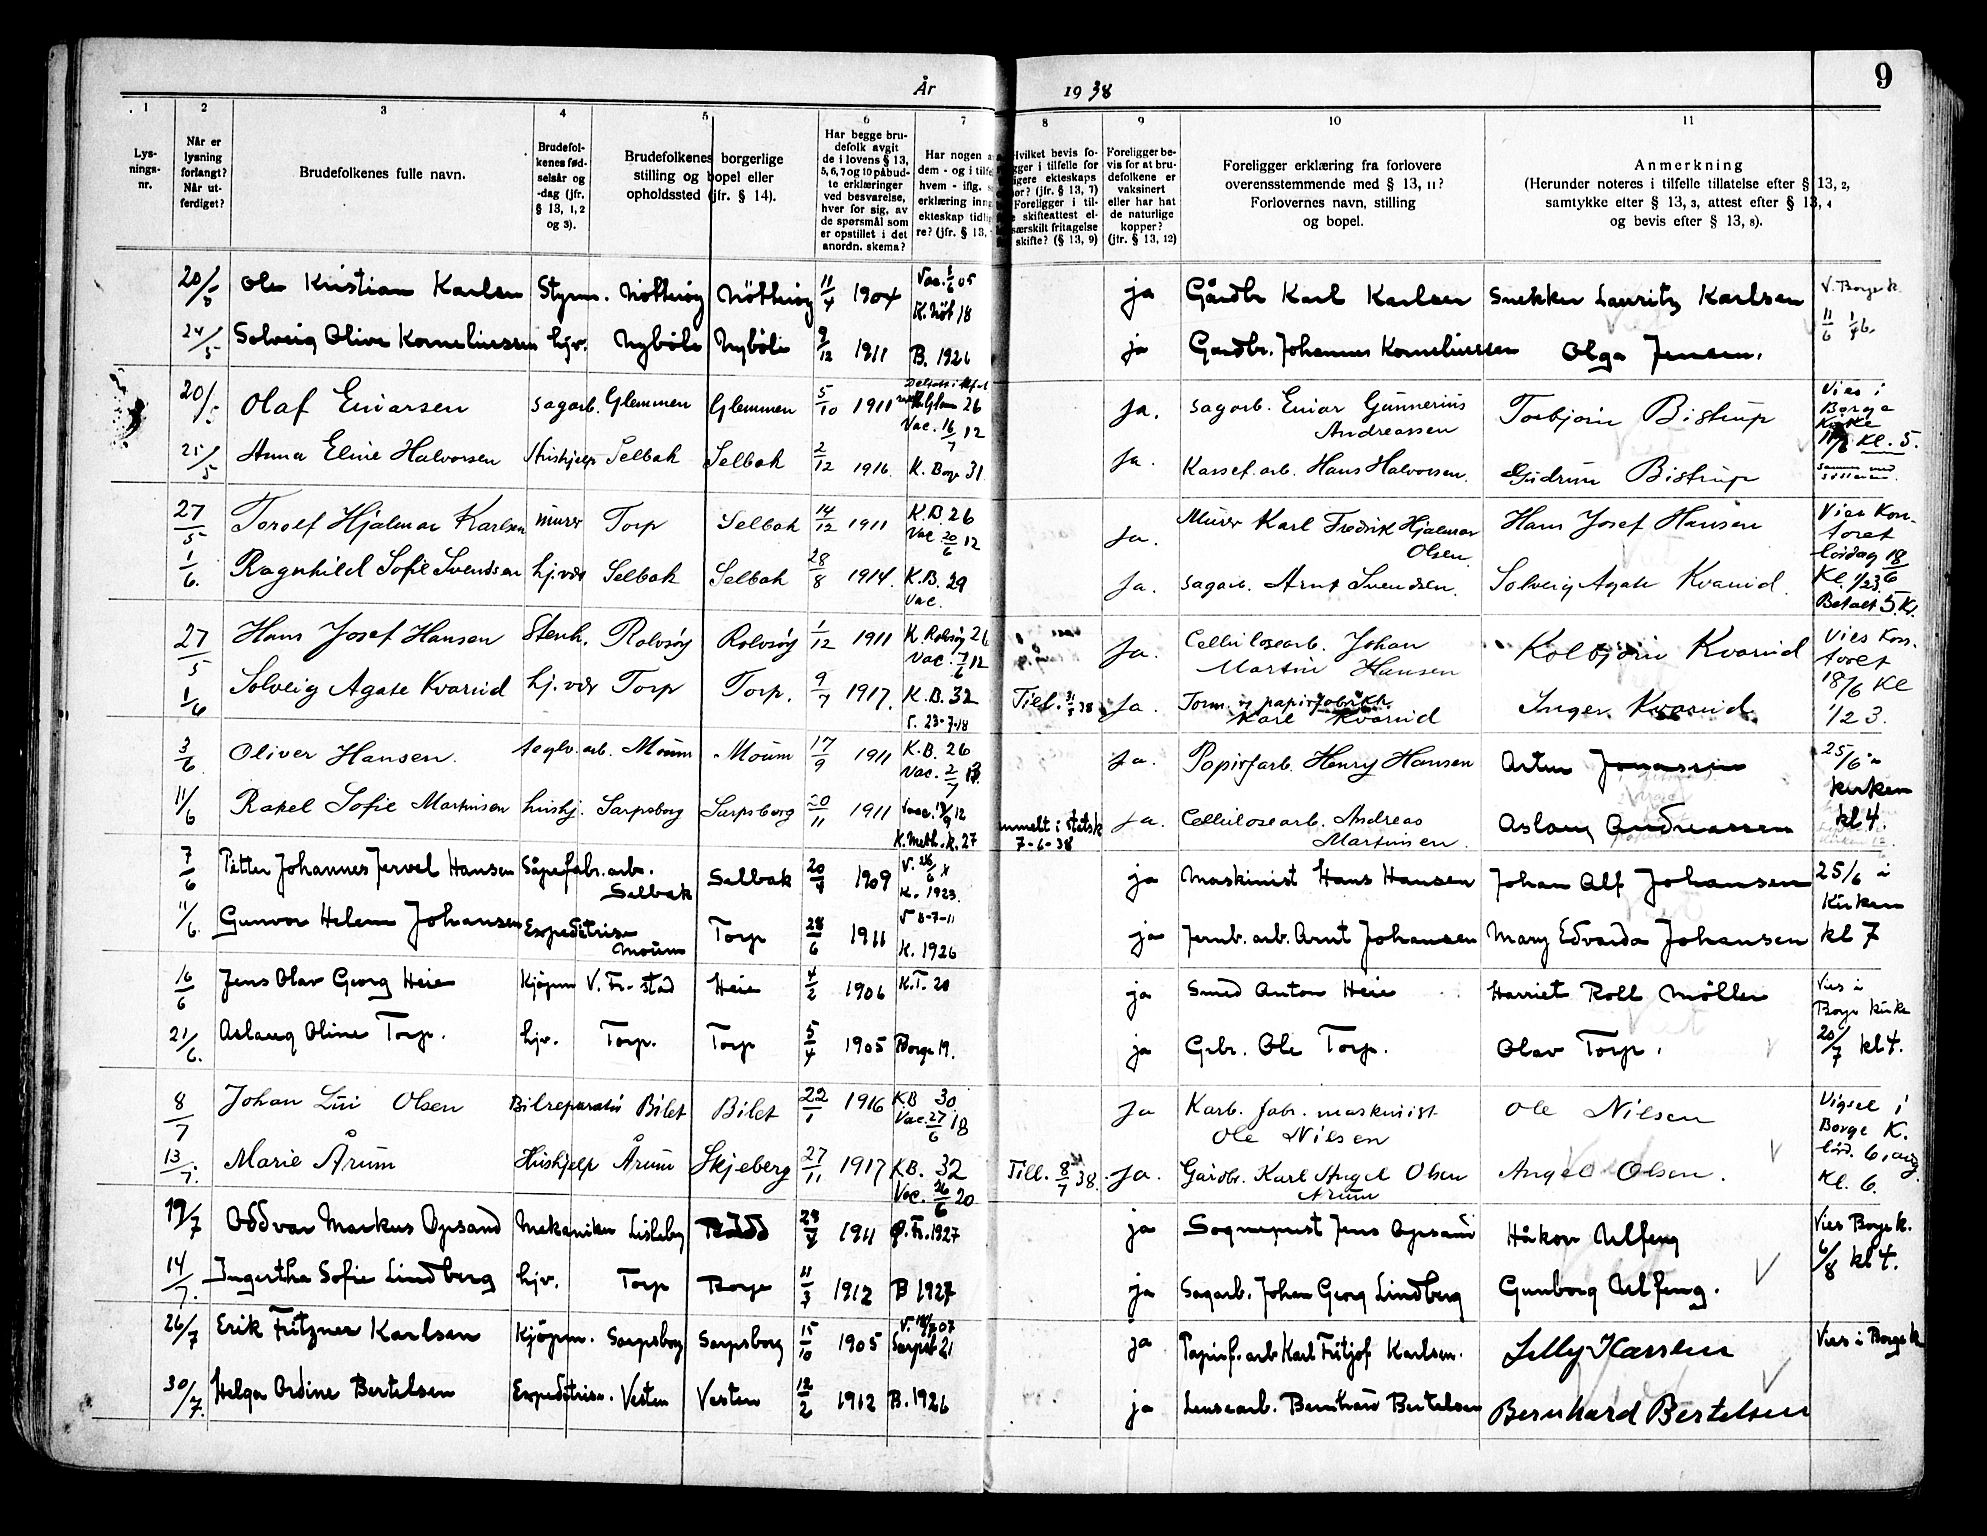 År 1938
9
1 2 3 4 5 6 7 8 9 10 11
Lys-
nings-
nr.
Når er
lysning
forlangt?
Når ut-
ferdiget?
Brudefolkenes fulle navn.
Brudefol-
kenes fød-
selsår og
-dag (jfr.
§ 13, 1, 2
og 3).
Brudefolkenes borgerlige
stilling og bopel eller
opholdssted (jfr. § 14).
Har begge bru-
defolk avgit
de i lovens § 13,
5, 6, 7 og 10 påbud-
te erklæringer
ved besvarelse,
hver for sig, av
de spørsmål som
er opstillet i det
anordn. skema?
Har nogen a
dem - og i tilfe
hvem - iflg. s
erklæring inng
ekteskap tidlig
re? (jfr. § 13,
Hvilket bevis fo-
gger i tilfelle for
igere ekteskaps
or? (jfr. § 13, 7)
Foreligger i til-
e skifteattest el-
særskilt fritagelse
skifte? (§ 13, 9)
Foreligger be-
vis for at bru-
defolkene er
vaksinert
eller har hat
de naturlige
kopper?
(jfr. § 13, 12)
Foreligger erklæring fra forlovere
overensstemmende med § 13, 11?
Forlovernes navn, stilling
og bopel.
Anmerkning
(Herunder noteres i tilfelle tillatelse efter § 13, 2,
samtykke efter § 13, 3, attest efter § 13, 4
og bevis efter § 13, 8).
20/5 Ole Kristian Karlsen Styrm. Nöttiröy Nöttiröy 11/4 1904 Vac. 05 K. Nöt 18 ja Gårdbr Karl Karlsen Snekker Lauritz Karlsen V. Borge k.
24/5 Solveig Olive Korneliussen hjv. Nyböle Nyböle 9/12 1911 B. 1926 ja Gardbr. Johannes Korneliussen Olga Jensen. 11/6
20/5 Olaf Einarsen sagarb. Glemmen Glemmen 5/10 1911 K. Glem 26 Vac. 16/7 12 Ja. sagarb. Einar Gunnerius Andreassen Torbjørn Bistrup Vies i Borge Kirke 11/6 Kl. 5.
25/5 Anna Eline Halvorsen Hushjelp Selbak Selbak 2/12 1916 K. Borg 31 Ja. Karsef. arb. Hans Halvorsen. Gudrun Bistrup
27/5 Torolf Hjalmar Karlsen murer Torp Selbak 14/12 1911 K.B. 26 Vac 20/6 12 Ja. Murer Karl Fredrik Hjalmar Olsen Hans Josef Hansen Vies Kon-
toret
lördag 18/6
Kl. 1/2 3.
Betalt 5 Kr.
1/6. Ragnhild Sofie Svendsen hj.vær Selbak Selbak 28/8 1914. K.B. 29 Vac. Ja. sagarb. Arnt Svendsen. Solveig Agate Kvarnid.
27/5 Hans Josef Hansen Stenh. Rolvsöy Rolvsöy 1/12 1911 K. Rolvsöy 26 Vac. 7/6 12 Ja. Cellulosearb. Johan Martin Hansen Kolbjörn Kvarnid Vies Kon-
toret
18/6 Kl
1/2 3.
1/6 Solveig Agate Kvarnid hj. vær Torp Torp. 9/7 1917. K.B. 32 v. 23-7-18 Till. 31/5 38 Ja. Form. v papirfabrikk. Karl Kvarnid Inger Kvarnid
3/6 Oliver Hansen. teglv. arb. Moum Moum 17/9 1911 K.B. 26 Vac. 2/7 13 Ja. Papirfarb. Henry Hansen Artur Jonassen 25/6 i
kirken
kl 4.
11/6 Rakel Sofie Martinsen hushj. Sarpsborg Sarpsborg 20/11 1911 Vac. 12 K. Meth. k. 27 nmelt i statsk 7-6-38 Ja. Cellulosearb. Andreas Martinsen. Aslaug Andreassen
7/6 Petter Johannes Jervel Hansen Såpefabr. arb. Selbak Selbak 20/4 1909 K. 1923. ja Maskinist Hans Hansen Johan Alf Johansen 25/6 i
Kirken
kl 7
11/6. Gunvor Helene Johansen Expeditrise Moum Torp 28/6 1911 V 8-7-11 K. 1926 ja Jernb. arb. Arnt Johansen Mary Edvarda Johansen
16/6 Jens Olav Georg Heie Kjöpm V. Fr. stad Heie 4/2 1906 K.T. 20 ja Smed Anton Heie Harriet Roll Möller Vies i
Borge kirke
20/7 kl 4.
21/6. Aslaug Oline Torp. hjv. Torp. Torp 5/4 1905 Borge 19. ja Grbr. Ole Torp. Olav Torp.
8/7 Johan Lui Olsen Bilreparatör Bilet Bilet 22/1 1916 KB 30 Vac. 27/6 18 Ja Karb. fabr. maskinist Ole Nilsen Ole Nilsen Vigsel i
Borge K.
lörd. 6. aug
Kl. 6.
13/7. Marie Årum Hushjelp Årum Skjeberg 27/11 1917 K.B. 32 Vac. 26/6 20 Till. 8/7 38. Ja. Gårdbr. Karl Angel Olsen Årum Angel Olsen.
19/7 Oddvar Markus Opsand Mekaniker Lisleby 1911 Fr. 1927 ja Sogneprest Jens Opsand Håkon Ulfeng Vies Borge k.
6/8 kl 4.
14/7. Ingertha Sofie Lindberg hjv. Torp Borge 11/3 1912 B 1927 ja Sagarb. Johan Georg Lindberg Gunborg Ulfeng.
26/7 Erik Fritzner Karlsen Kjöpm. Sarpsborg Sarpsborg 15/10 1905 Sarpsb 21 ja Papirf. arb Karl Fritjof Karlsen. Lilly Karsen Vies i Borge k
30/7. Helga Ordine Bertelsen Expeditrise. Vesten Vesten 12/2 1912 B. 1926 ja Lensearb. Bernhard Bertelsen Bernhard Bertelsen